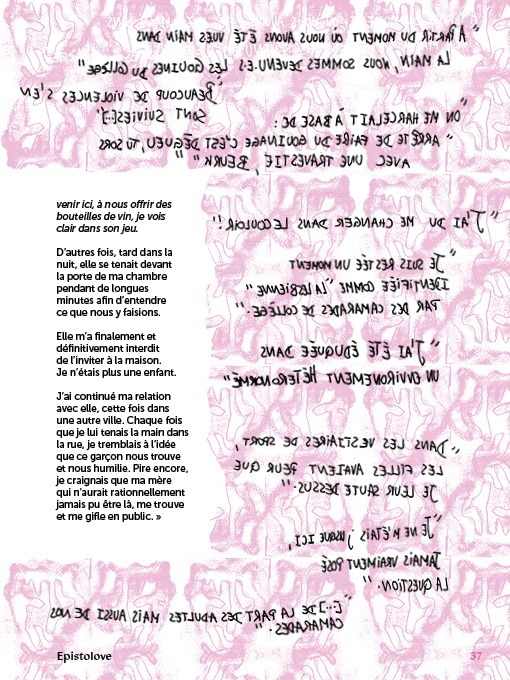 "À PARTIR DU MOMENT OÙ NOUS AVONS ÉTÉ VUES MAIN DANS
LA MAIN, NOUS SOMMES DEVENU.E.S LES GOUINES DU COLLÈGE"
BEAUCOUP DE VIOLENCES S'EN
SONT SUIVIES[.]"
"ON ME HARCELAIT À BASE DE :
"ARRÊTE DE FAIRE DU GOUINAGE C'EST DÉGUEU, TU SORS
AVEC UNE TRAVESTIE, BEURK" "
"J'AI DU ME CHANGER DANS LE COULOIR!"
"JE SUIS RESTÉE UN MOMENT
IDENTIFIÉE COMME "LA LESBIENNE"
PAR DES CAMARADES DE COLLÈGE."
"J'AI ÉTÉ ÉDUQUÉE DANS
UN ENVIRONEMENT HÉTÉRONORMÉ"
"DANS LES VESTIAIRES DE SPORT,
LES FILLES AVAIENT PEUR QUE
JE LEUR SAUTE DESSUS."
"JE NE M'ÉTAIS, JUSQUE ICI,
JAMAIS VRAIMENT POSÉ
LA QUESTION."
"[...] DE LA PART DES ADULTES MAIS AUSSI DE NOS
CAMARADES."
venir ici, à nous offrir des
bouteilles de vin, je vois
clair dans son jeu.
D'autres fois, tard dans la
nuit, elle se tenait devant
la porte de ma chambre
pendant de longues
minutes afin d'entendre
ce que nous y faisions.
Elle m'a finalement et
définitivement interdit
de l'inviter à la maison.
Je n'étais plus une enfant.
J'ai continué ma relation
avec elle, cette fois dans
une autre ville. Chaque fois
que je lui tenais la main dans
la rue, je tremblais à l'idée
que ce garçon nous trouve
et nous humilie. Pire encore,
je craignais que ma mère
qui n'aurait rationnellement
jamais pu être là, me trouve
et me gifle en public. »
Epistolove
37